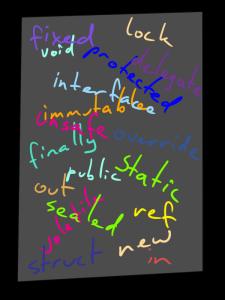 fixed lock
void protected delegate
interface
immutable
unsafe override
finally
public static
out
sealed ref
volatile
new
struct in